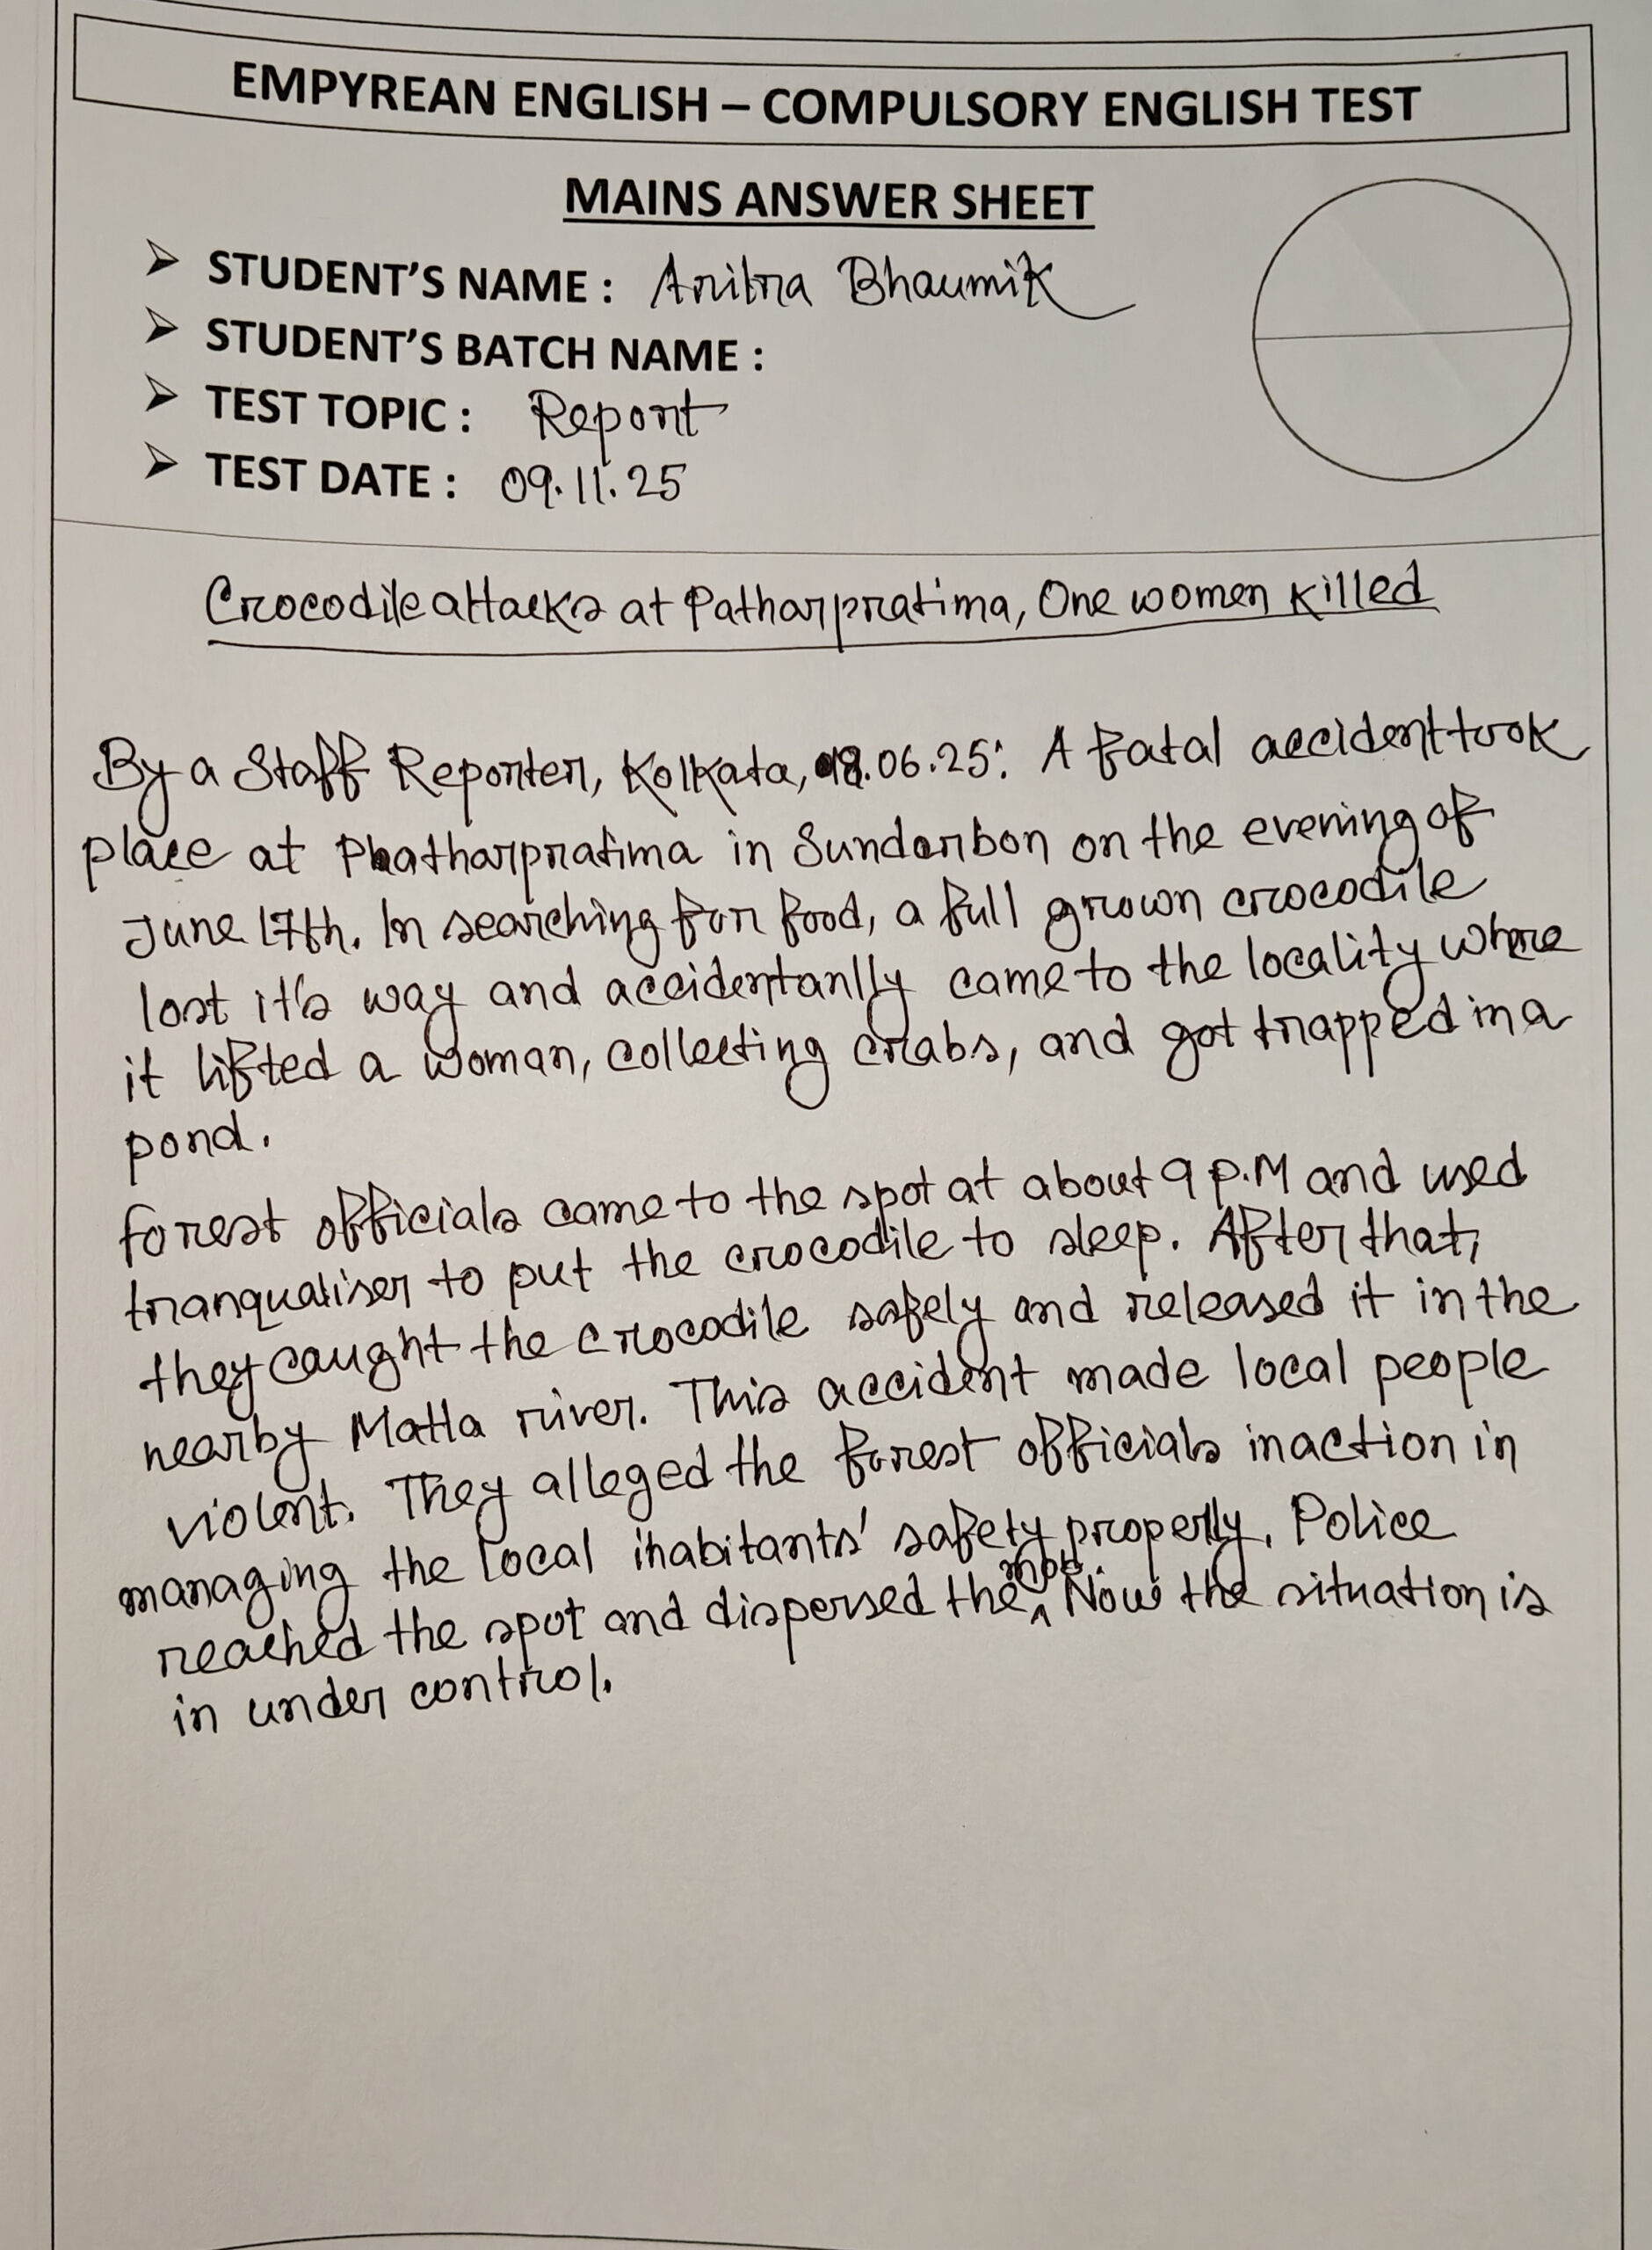 EMPYREAN ENGLISH – COMPULSORY ENGLISH TEST
MAINS ANSWER SHEET
➢ STUDENT'S NAME : Aritra Bhaumik
➢ STUDENT'S BATCH NAME :
➢ TEST TOPIC : Report
➢ TEST DATE : 09.11.25
Crocodile attacks at Patharpratima, One women killed
By a Staff Reporter, Kolkata, 18.06.25: A fatal accident took
place at Phatharpratima in Sundarbon on the evening of
June 17th. In searching for food, a full grown crocodile
lost it's way and accidentanlly came to the locality where
it lifted a woman, collecting crabs, and got trapped in a
pond.
Forest officials came to the spot at about 9 p.M and used
tranqualiser to put the crocodile to sleep. After that,
they caught the crocodile safely and released it in the
nearby Matla river. This accident made local people
violent. They alleged the forest officials inaction in
managing the local inhabitants' safety properly. Police
reached the spot and dispersed the mob. Now the situation is
in under control.